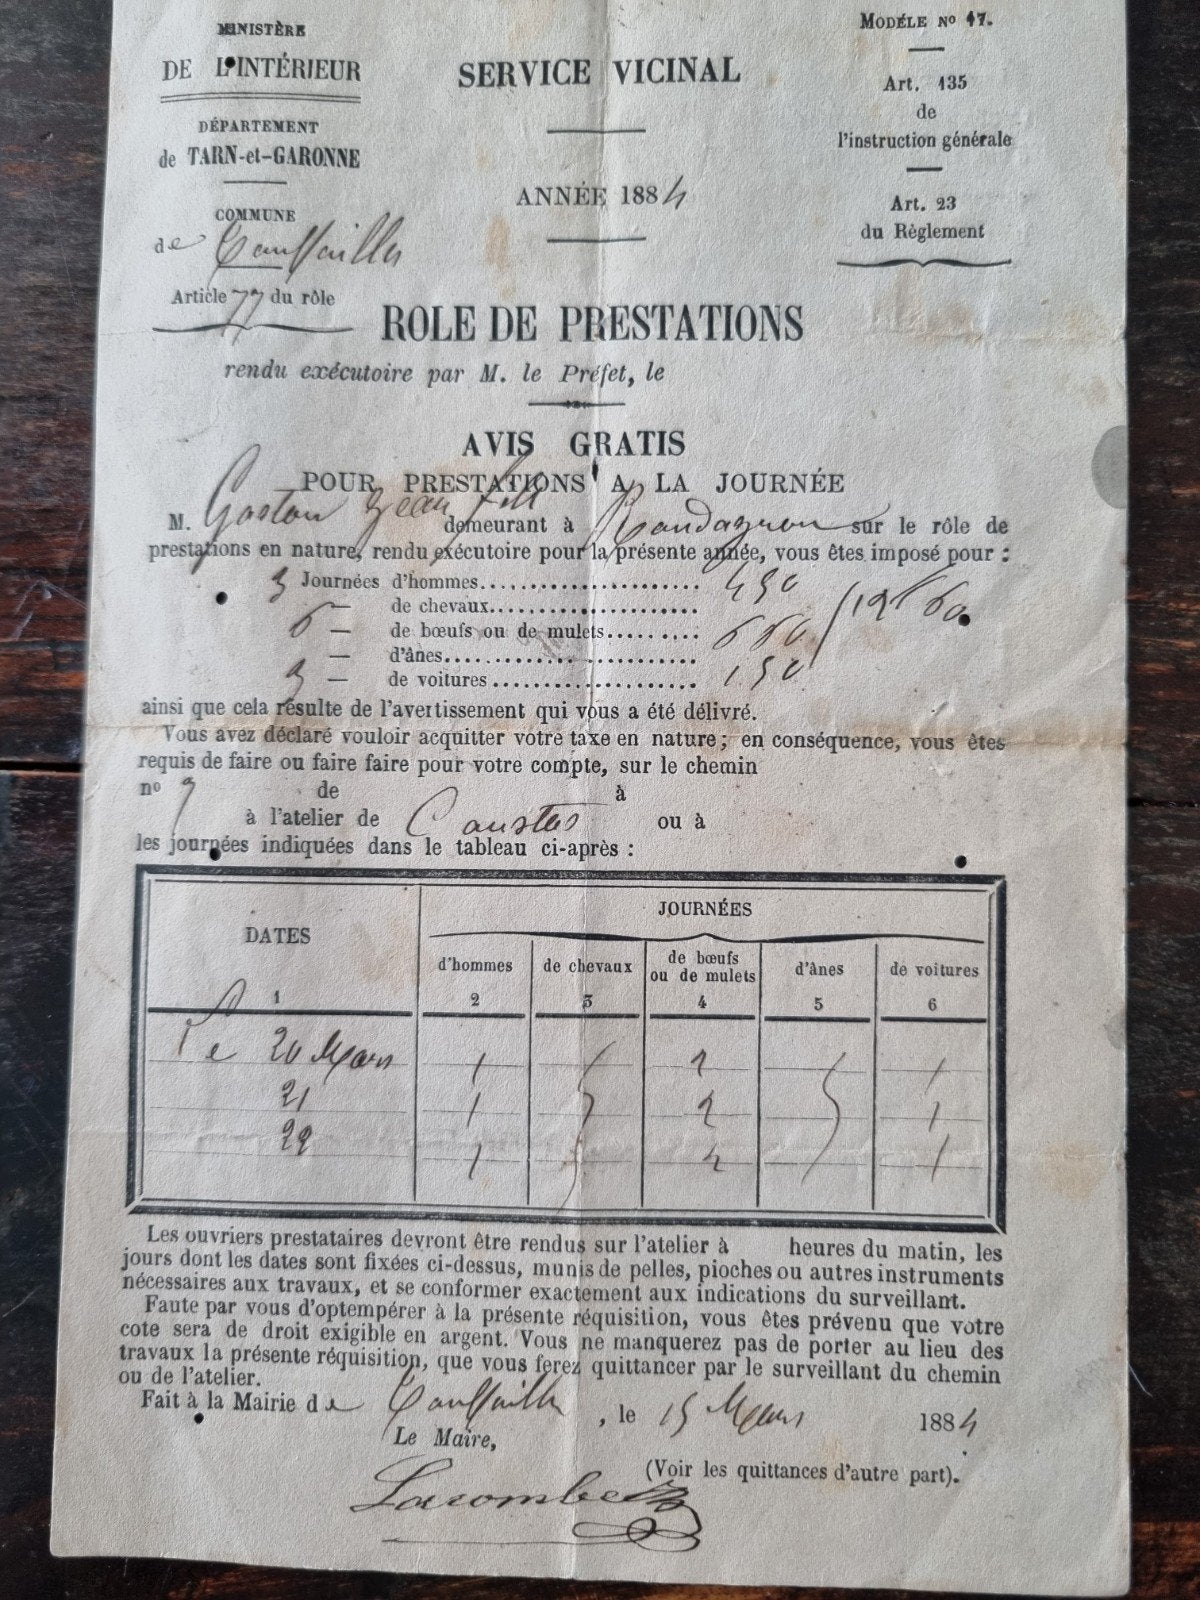 MINISTÈRE
DE L'INTÉRIEUR
DÉPARTEMENT
de TARN-et-GARONNE
COMMUNE
de Touffailles
Article 77 du rôle
SERVICE VICINAL
ANNÉE 1884
MODÉLE No 47.
Art. 135
de
l'instruction générale
Art. 23
du Règlement
ROLE DE PRESTATIONS
rendu exécutoire par M. le Préfet, le
AVIS GRATIS
POUR PRESTATIONS A LA JOURNÉE
M. Gaston Jean fils demeurant à sur le rôle de
prestations en nature, rendu exécutoire pour la présente année, vous êtes imposé pour :
3 Journées d'hommes.................... 4 50
de chevaux....................
6 — de bœufs ou de mulets......... 6 60 12 f 60
— d'ânes....................
3 — de voitures.................... 1 50
ainsi que cela résulte de l'avertissement qui vous a été délivré.
Vous avez déclaré vouloir acquitter votre taxe en nature; en conséquence, vous êtes
requis de faire ou faire faire pour votre compte, sur le chemin
no 7 de à
à l'atelier de ou à
les journées indiquées dans le tableau ci-après :
DATES
JOURNÉES
d'hommes de chevaux de bœufs ou de mulets d'ânes de voitures
1 2 3 4 5 6
le 20 Mars 1 2 1
21 1 2 1
22 1 2 1
Les ouvriers prestataires devront être rendus sur l'atelier à heures du matin, les
jours dont les dates sont fixées ci-dessus, munis de pelles, pioches ou autres instruments
nécessaires aux travaux, et se conformer exactement aux indications du surveillant.
Faute par vous d'optempérer à la présente réquisition, vous êtes prévenu que votre
cote sera de droit exigible en argent. Vous ne manquerez pas de porter au lieu des
travaux la présente réquisition, que vous ferez quittancer par le surveillant du chemin
ou de l'atelier.
Fait à la Mairie de Touffailles, le 15 Mars 1884
Le Maire,
(Voir les quittances d'autre part).
Lacombe